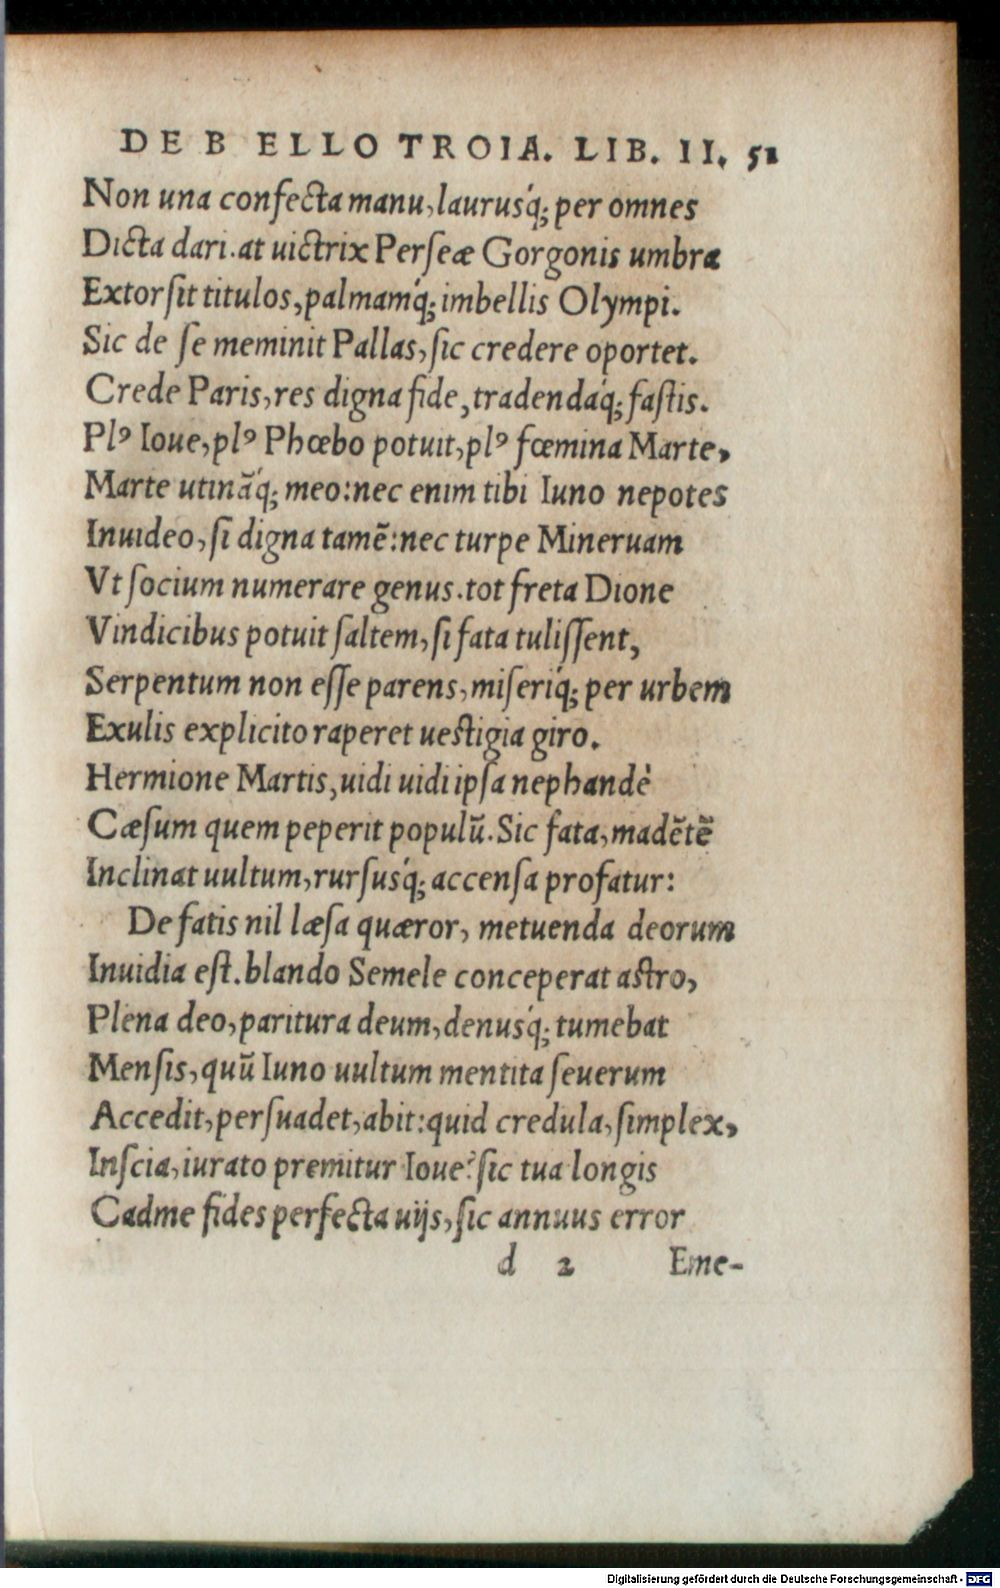 DE BELLO TROIA. LIB. II. 51
Non una confecta manu, laurusq́; per omnes
Dicta dari. at uictrix Perseæ Gorgonis umbra
Extorsit titulos, palmamq́; imbellis Olympi.
Sic de se meminit Pallas, sic credere oportet.
Crede Paris, res digna fide, tradendaq́; fastis.
Plꝰ Ioue, plꝰ Phœbo potuit, plꝰ fœmina Marte,
Marte utinãq́; meo: nec enim tibi Iuno nepotes
Inuideo, si digna tamẽ: nec turpe Mineruam
Vt socium numerare genus. tot freta Dione
Vindicibus potuit saltem, si fata tulissent,
Serpentum non esse parens, miseriq́; per urbem
Exulis explicito raperet uestigia giro.
Hermione Martis, uidi uidi ipsa nephandè
Cæsum quem peperit populũ. Sic fata, madẽtẽ
Inclinat uultum, rursusq́; accensa profatur:
De fatis nil læsa quæror, metuenda deorum
Inuidia est. blando Semele conceperat astro,
Plena deo, paritura deum, denusq́; tumebat
Mensis, quũ Iuno uultum mentita seuerum
Accedit, persuadet, abit: quid credula, simplex,
Inscia, iurato premitur Ioue? sic tua longis
Cadme fides perfecta uijs, sic annuus error
d 2 Eme-
Digitalisierung gefördert durch die Deutsche Forschungsgemeinschaft - DFG